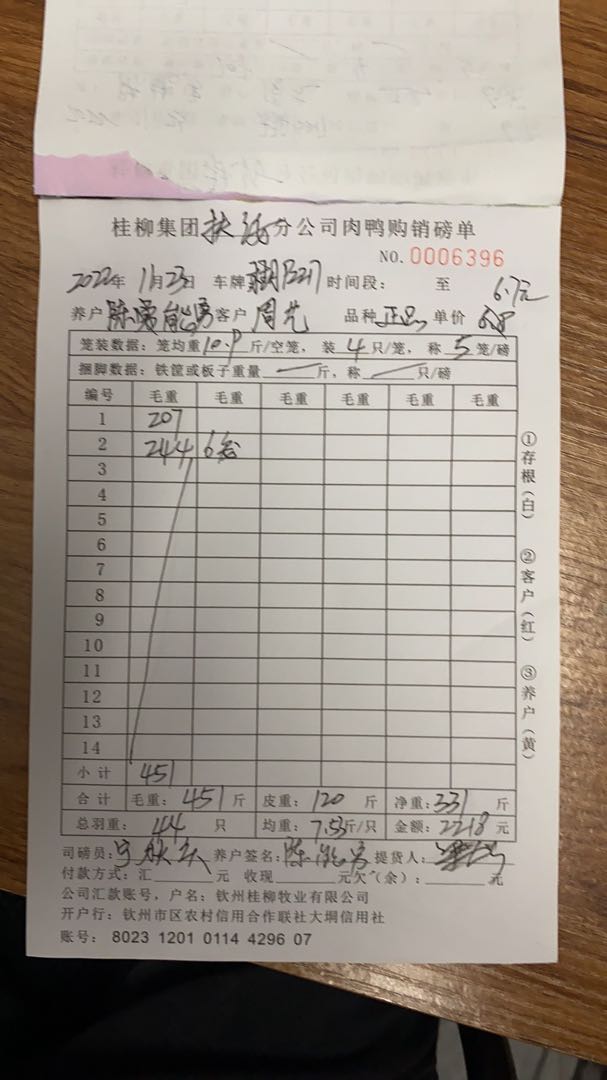 桂柳集团 分公司肉鸭购销磅单
NO. 0006396
2022年 11月23日 车牌 B217 时间段: 至 6.7元
养户 陈 能勇 客户 周先 品种 正品 单价 6.8
笼装数据: 笼均重 10.9 斤/空笼, 装 4 只/笼, 称 5 笼/磅
捆脚数据: 铁筐或板子重量 — 斤, 称 — 只/磅
编号 毛重 毛重 毛重 毛重 毛重 毛重
1 207
2 244 6笼
3
4
5
6
7
8
9
10
11
12
13
14
小计 451
合计 毛重: 451 斤 皮重: 120 斤 净重: 331 斤
总羽重: 44 只 均重: 7.53 斤/只 金额: 2218 元
司磅员: 养户签名: 陈能勇 提货人:
付款方式: 汇______元 收现______元欠(余): ______元
公司汇款账号, 户名: 钦州桂柳牧业有限公司
开户行: 钦州市区农村信用合作联社大垌信用社
账号: 8023 1201 0114 4296 07
①存根(白)
②客户(红)
③养户(黄)